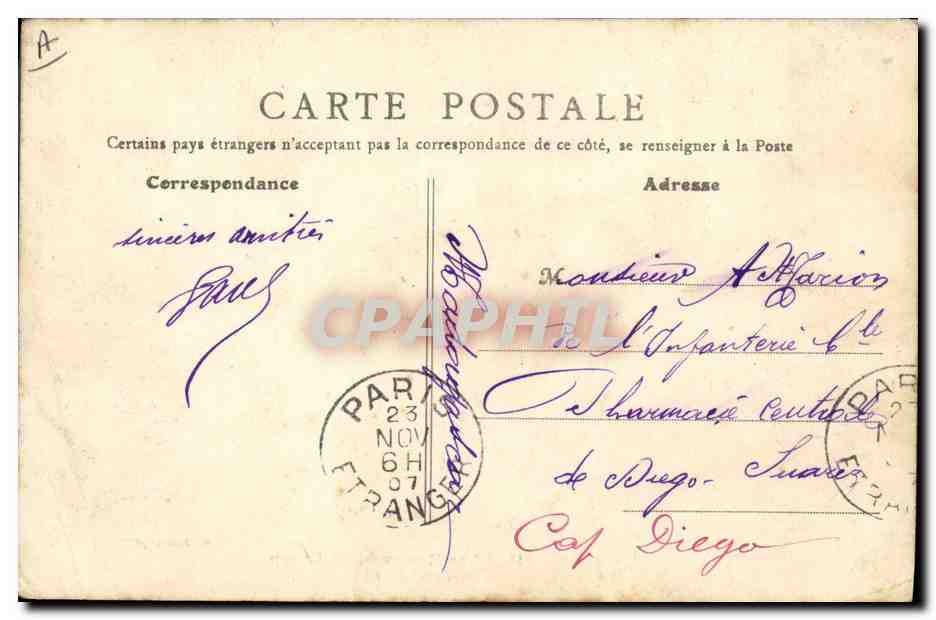 A
CARTE POSTALE
Certains pays étrangers n'acceptant pas la correspondance de ce côté, se renseigner à la Poste
Correspondance
Adresse
sincères amitiés
Monsieur A Marion
De l'Infanterie Cle
Pharmacie Centrale
de Diego-Suarez
Cap Diego
Madagascar
CPAPHIL
PARIS
23
NOV
6 H
07
ETRANGER
PAR
ETRAN